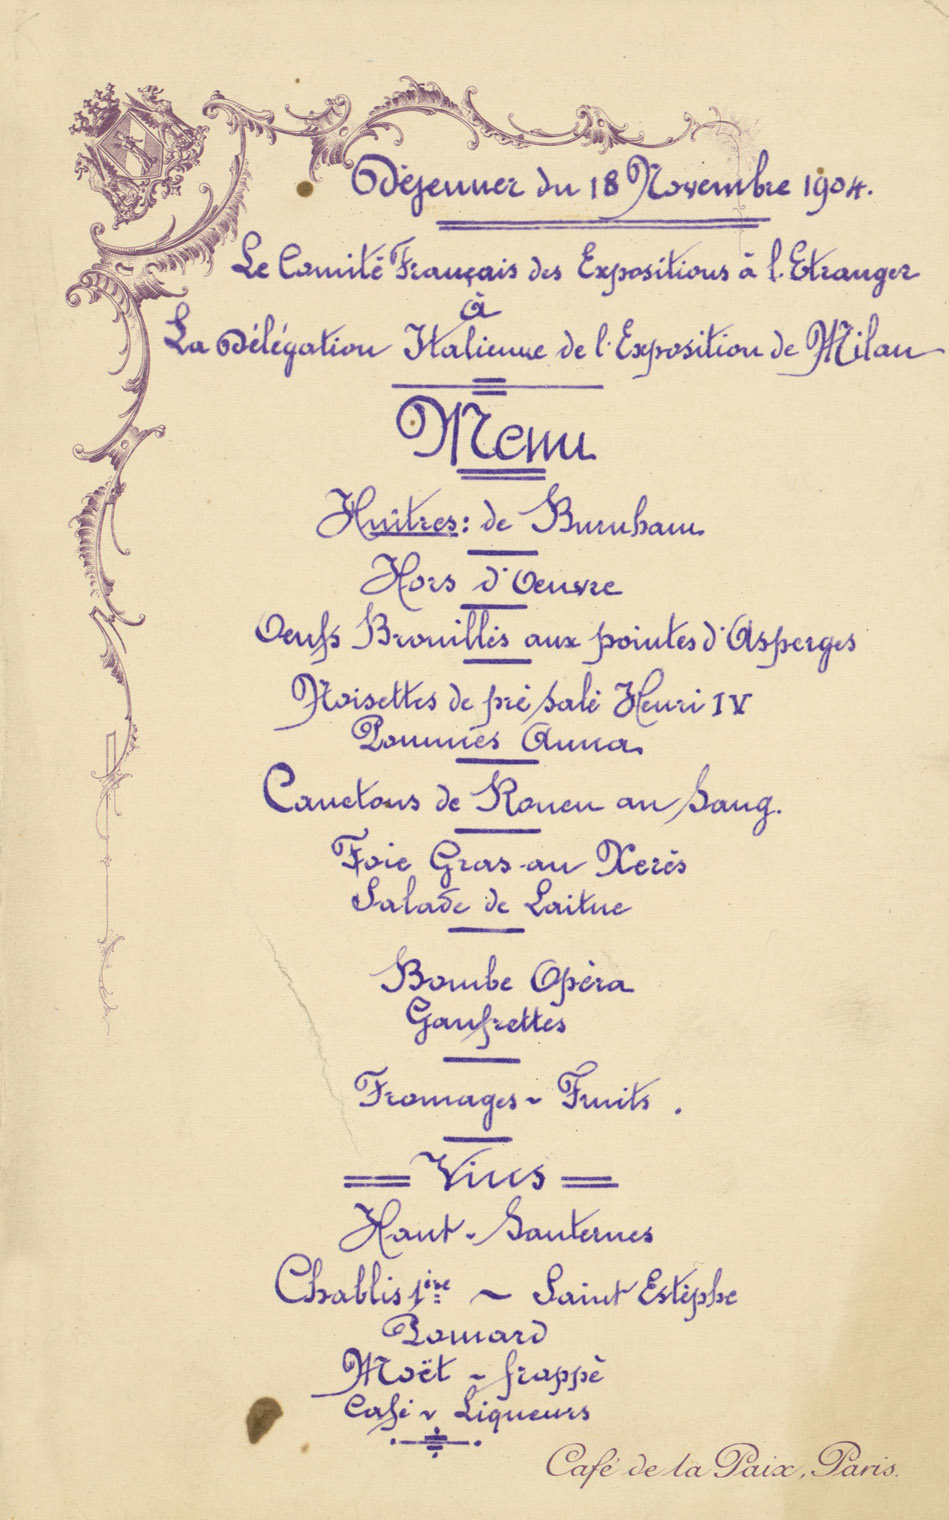 Déjeuner du 18 Novembre 1904.
Le Comité Français des Expositions à l'Etranger
à
La Délégation Italienne de l'Exposition de Milan
Menu
Huîtres: de Burnham
Hors d'Oeuvre
Oeufs Brouillés aux pointes d'Asperges
Noisettes de pré salé Henri IV
Pommes Anna
Canetons de Rouen au Sang.
Foie Gras au Xerès
Salade de Laitue
Bombe Opéra
Gaufrettes
Fromages ~ Fruits.
Vins
Haut-Sauternes
Chablis 1ière ~ Saint Estèphe
Pomard
Moët ~ frappé
Café ~ Liqueurs
Café de la Paix, Paris.